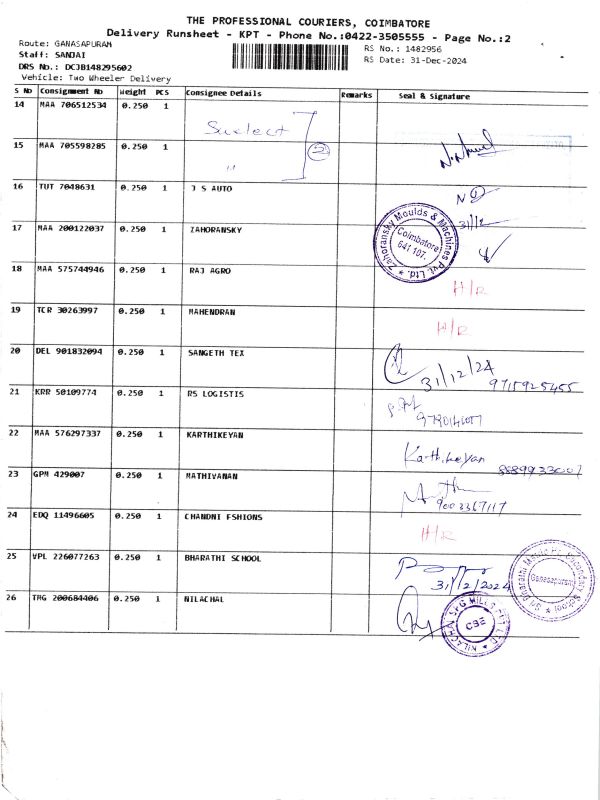 THE PROFESSIONAL COURIERS, COIMBATORE
Delivery Runsheet - KPT - Phone No.:0422-3505555 - Page No.:2
Route: GANASAPURAM
Staff: SANJAI
DRS No.: DCJB148295602
Vehicle: Two Wheeler Delivery
RS No.: 1482956
RS Date: 31-Dec-2024
S No Consignment No Weight PCS Consignee Details Remarks Seal & Signature
14 MAA 706512534 0.250 1
15 MAA 705598285 0.250 1 "
16 TUT 7048631 0.250 1 J S AUTO
31/12
17 MAA 200122037 0.250 1 ZAHORANSKY
Zahoransky Moulds & Machines Pvt. Ltd. ★
Coimbatore
641 107.
18 MAA 575744946 0.250 1 RAJ AGRO H/R
19 TCR 30263997 0.250 1 MAHENDRAN H/R
20 DEL 901832094 0.250 1 SANGETH TEX 31/12/24
9715925455
21 KRR 50109774 0.250 1 RS LOGISTIS
22 MAA 576297337 0.250 1 KARTHIKEYAN Karthikeyan
23 GPM 429007 0.250 1 MATHIVANAN
24 EDQ 11496605 0.250 1 CHANDNI FSHIONS H/R
25 VPL 226077263 0.250 1 BHARATHI SCHOOL
31/12/2024
Ganasapuram
26 TMG 200684406 0.250 1 NILACHAL
CBE